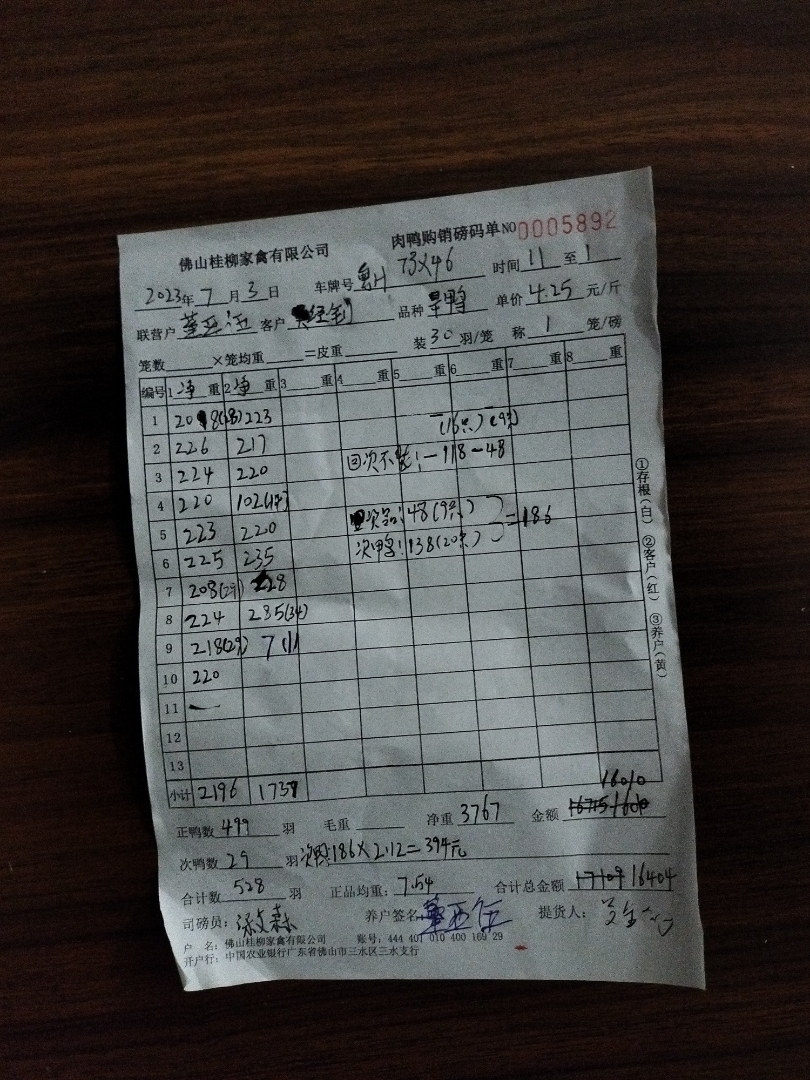 佛山桂柳家禽有限公司 肉鸭购销磅码单 NO 0005892
2023年 7 月 3 日 车牌号 73X46 时间 11 至 1
联营户 客户 品种 旱鸭 单价 4.25 元/斤
笼数 ×笼均重 =皮重 装 30 羽/笼 称 1 笼/磅
编号 1 净 重 2 净 重 3 重 4 重 5 重 6 重 7 重 8 重
1 223
(16只) (9只)
2 226 217
回次不能:-118-48
3 224 220
4 220 102
5 223 220
次品:48(9只)
=186
6 225 235
次鸭:138(20只)
7 208(29) 228
8 224 235(34)
9 218(29) 7
10 220
11 —
12
13
小计 2196 1737
16010
正鸭数 499 羽 毛重 净重 3767 金额
次鸭数 29 羽 次鸭:186×2.12=394元
合计数 528 羽 正品均重: 7.54 合计总金额 17109 16404
司磅员: 养户签名: 提货人:
户 名: 佛山桂柳家禽有限公司 账号: 444 401 010 400 169 29
开户行: 中国农业银行广东省佛山市三水区三水支行
①存根(白) ②客户(红) ③养户(黄)